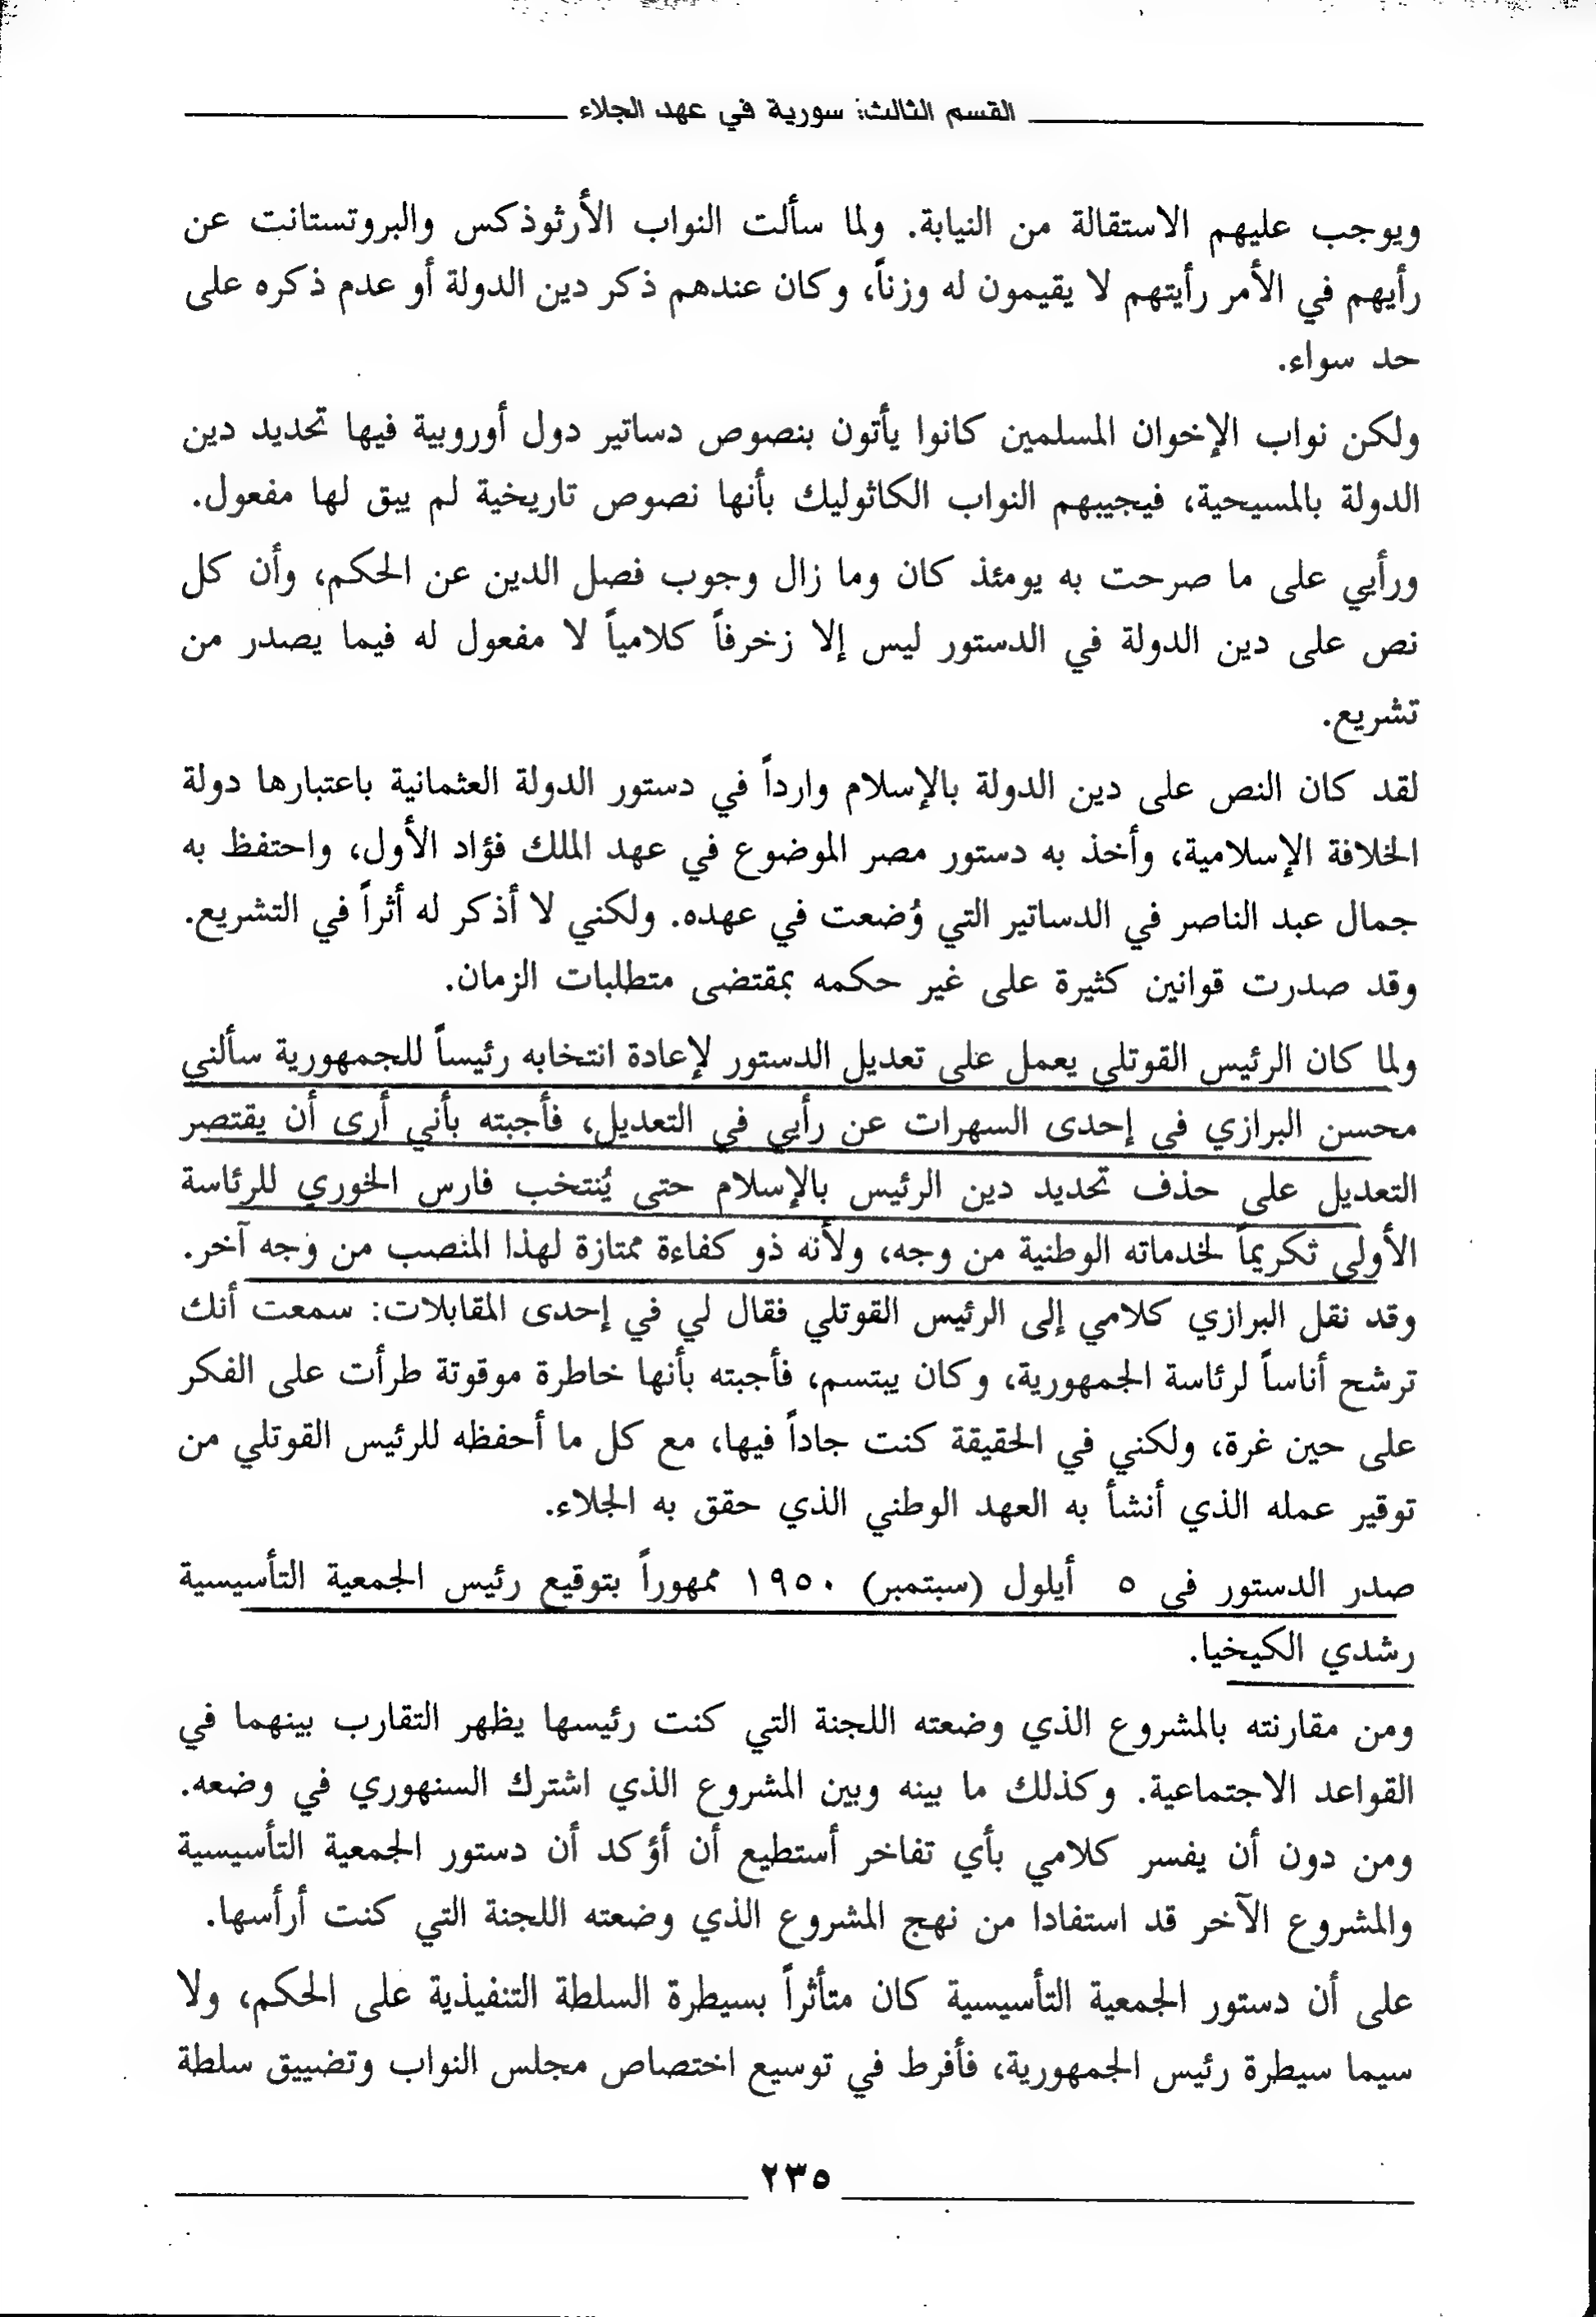 القسم الثالث: سورية في عهد الجلاء
ويوجب عليهم الاستقالة من النيابة. ولما سألت النواب الأرثوذكس والبروتستانت عن
رأيهم في الأمر رأيتهم لا يقيمون له وزناً، وكان عندهم ذكر دين الدولة أو عدم ذكره على
حد سواء.
ولكن نواب الإخوان المسلمين كانوا يأتون بنصوص دساتير دول أوروبية فيها تحديد دين
الدولة بالمسيحية، فيجيبهم النواب الكاثوليك بأنها نصوص تاريخية لم يبق لها مفعول.
ورأيي على ما صرحت به يومئذ كان وما زال وجوب فصل الدين عن الحكم، وأن كل
نص على دين الدولة في الدستور ليس إلا زخرفاً كلامياً لا مفعول له فيما يصدر من
تشريع.
لقد كان النص على دين الدولة بالإسلام وارداً في دستور الدولة العثمانية باعتبارها دولة
الخلافة الإسلامية، وأخذ به دستور مصر الموضوع في عهد الملك فؤاد الأول، واحتفظ به
جمال عبد الناصر في الدساتير التي وُضعت في عهده. ولكني لا أذكر له أثراً في التشريع.
وقد صدرت قوانين كثيرة على غير حكمه بمقتضى متطلبات الزمان.
ولما كان الرئيس القوتلي يعمل على تعديل الدستور لإعادة انتخابه رئيساً للجمهورية سألني
محسن البرازي في إحدى السهرات عن رأيي في التعديل، فأجبته بأني أرى أن يقتصر
التعديل على حذف تحديد دين الرئيس بالإسلام حتى يُنتخب فارس الخوري للرئاسة
الأولى تكريماً لخدماته الوطنية من وجه، ولأنه ذو كفاءة ممتازة لهذا المنصب من وجه آخر.
وقد نقل البرازي كلامي إلى الرئيس القوتلي فقال لي في إحدى المقابلات: سمعت أنك
ترشح أناساً لرئاسة الجمهورية، وكان يبتسم، فأجبته بأنها خاطرة موقوتة طرأت على الفكر
على حين غرة، ولكني في الحقيقة كنت جاداً فيها، مع كل ما أحفظه للرئيس القوتلي من
توقير عمله الذي أنشأ به العهد الوطني الذي حقق به الجلاء.
صدر الدستور في ٥ أيلول (سبتمبر) ١٩٥٠ ممهوراً بتوقيع رئيس الجمعية التأسيسية
رشدي الكيخيا.
ومن مقارنته بالمشروع الذي وضعته اللجنة التي كنت رئيسها يظهر التقارب بينهما في
القواعد الاجتماعية. وكذلك ما بينه وبين المشروع الذي اشترك السنهوري في وضعه.
ومن دون أن يفسر كلامي بأي تفاخر أستطيع أن أؤكد أن دستور الجمعية التأسيسية
والمشروع الآخر قد استفادا من نهج المشروع الذي وضعته اللجنة التي كنت أرأسها.
على أن دستور الجمعية التأسيسية كان متأثراً بسيطرة السلطة التنفيذية على الحكم، ولا
سيما سيطرة رئيس الجمهورية، فأفرط في توسيع اختصاص مجلس النواب وتضييق سلطة
٢٣٥